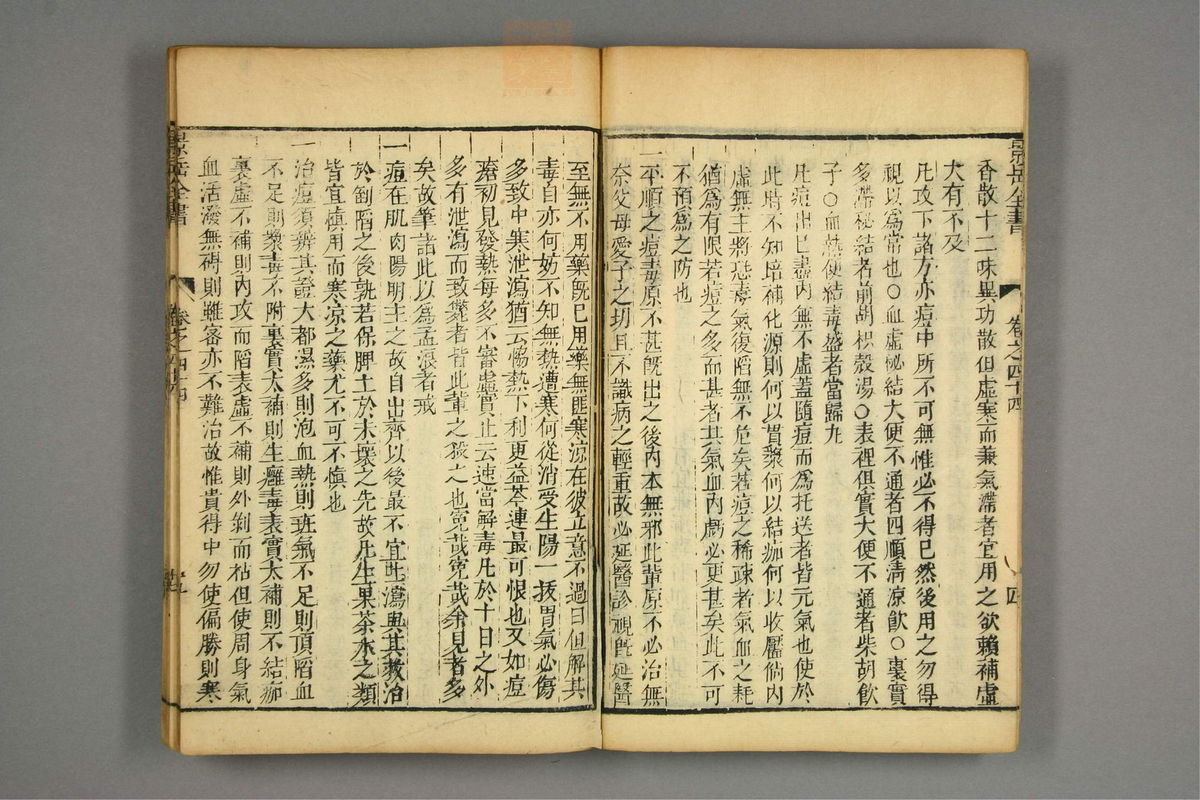 景岳全書
卷之四十四
四
香散十二味異功散但虛寒而兼氣滯者宜用之欲賴補虛
大有不及
凡攻下諸方亦痘中所不可無惟必不得已然後用之勿得
視以爲常也○血虛秘結大便不通者四順清凉飲○裏實
多滯秘結者前胡枳殼湯○表裡俱實大便不通者柴胡飲
子○血熱便結毒盛者當歸丸
凡痘出已盡內無不虛蓋隨痘而爲托送者皆元氣也使於
此時不知培補化源則何以貫漿何以結痂何以收靨倘內
虛無主將恐毒氣復陷無不危矣若痘之稀疎者氣血之耗
猶爲有限若痘之多而甚者其氣血內虧必更甚矣此不可
不預爲之防也
一平順之痘毒原不甚旣出之後內本無邪此輩原不必治無
奈父母愛子之切且不識病之輕重故必延醫診視旣延醫
至無不用藥旣已用藥無匪寒凉在彼立意不過曰但解其
毒自亦何妨不知無熱遭寒何從消受生陽一拔胃氣必傷
多致中寒泄瀉猶云恊熱下利更益芩連最可恨也又如痘
瘡初見發熱每多不審虛實止云速當解毒凡於十日之外
多有泄瀉而致斃者皆此輩之殺之也寃哉寃哉余見者多
矣故筆諸此以爲孟浪者戒
一痘在肌肉陽明主之故自出齊以後最不宜吐瀉與其救治
於劄陷之後孰若保脾土於未壞之先故凡生果茶水之類
皆宜慎用而寒凉之藥尤不可不慎也
一治痘須辨其證大都濕多則泡血熱則班氣不足則頂陷血
不足則漿毒不附裏實太補則生癰毒表實太補則不結痂
裏虛不補則內攻而陷表虛不補則外剝而枯但使周身氣
血活潑無碍則雖密亦不難治故惟貴得中勿使偏勝則寒
景岳全書
卷之四十四